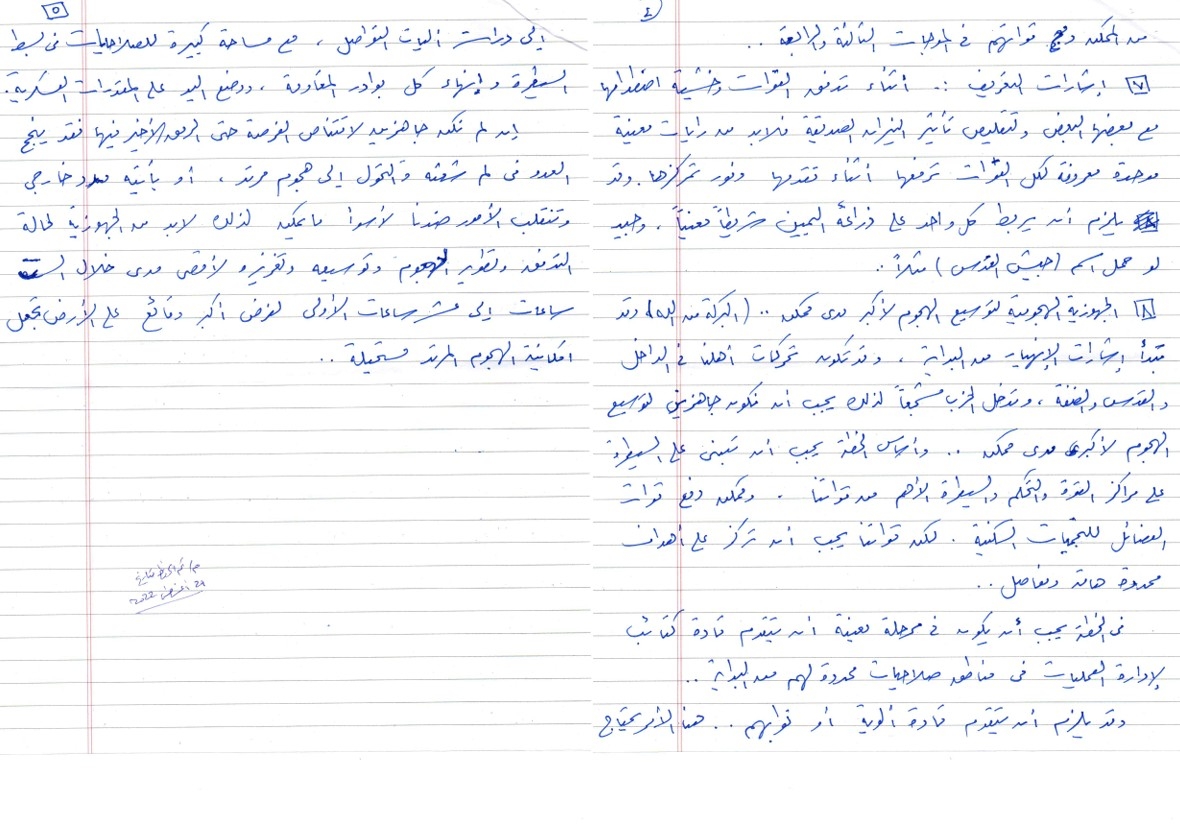 ٤
من الممكن دمج قواتهم في الموجات الثالثة والرابعة ..
٧ إشارات التعريف :. أثناء تدفق القوات وخشية اصطدامها
مع بعضها البعض ولتقليص تأثير النيران الصديقة فلابد من رايات معينة
موحدة معروفة لكل القوات ترفعها أثناء تقدمها وفور تمركزها. وقد
يلزم أن يربط كل واحد على ذراعه اليمين شريطاً معيناً، وحبيذ
لو حمل اسم (جيش القدس) مثلاً ..
٨ الجهوزية الهجومية لتوسيع الهجوم لأكبر مدى ممكن .. (البركة من الله) وقد
تبدأ إشارات الإنهيار من البداية، وقد تكون تحركات أهلنا في الداخل
والقدس والضفة، وتدخل الحزب مشجعاً لذلك يجب أن نكون جاهزين لتوسيع
الهجوم لأكبر مدى ممكن .. وأساس الخطة يجب أن تبنى على السيطرة
على مراكز القوة والتحكم والسيطرة الأهم من قواتنا. وممكن دفع قوات
الفصائل للتجمعات السكنية. لكن قواتنا يجب أن تركز على أهداف
محددة هامة ومفاصل ..
في الخطة يجب أن يكون في مرحلة معينة أن يتقدم قادة كتائب
لإدارة العمليات في مناطق صلاحيات محددة لهم من البداية ..
وقد يلزم أن يتقدم قادة ألوية أو نوابهم .. هذا الأمر يحتاج
٥
إلى دراسة آليات التواصل، مع مساحة كبيرة للصلاحيات في بسط
السيطرة وإنهاء كل بوادر المقاومة، ووضع اليد على المقدرات العسكرية.
إن لم نكن جاهزين لاقتناص الفرصة حتى الرمق الأخير فيها فقد ينجح
العدو في لم شعثه والتحول إلى هجوم مرتد، أو يأتيه مدد خارجي
وتنقلب الأمور ضدنا لأسوأ ما يمكن لذلك لابد من الجهوزية لحالة
التدفق وتطوير الهجوم وتوسيعه وتعزيزه لأقصى مدى خلال الست
ساعات إلى عشر ساعات الأولى لفرض أكبر وقائع على الأرض تجعل
امكانية الهجوم المرتد مستحيلة ..
٢٤ أغسطس ٢٠٢٢